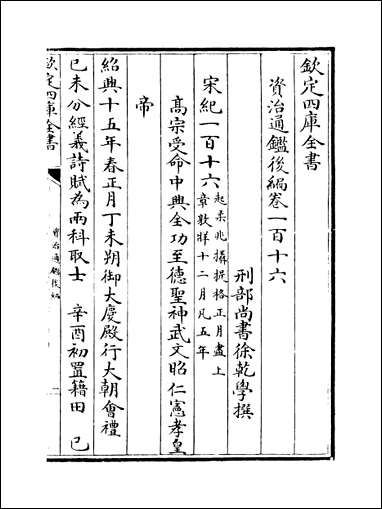 欽定四庫全書
資治通鑑後編卷一百十六
刑部尚書徐乾學撰
宋紀一百十六 起柔兆攝提格正月盡上
章敦牂十二月凡五年
高宗受命中興全功至德聖神武文昭仁憲孝皇
帝
紹興十五年春正月丁未朔御大慶殿行大朝會禮
己未分經義詩賦為兩科取士 辛酉初置籍田 己
欽定四庫全書
資治通鑑後編